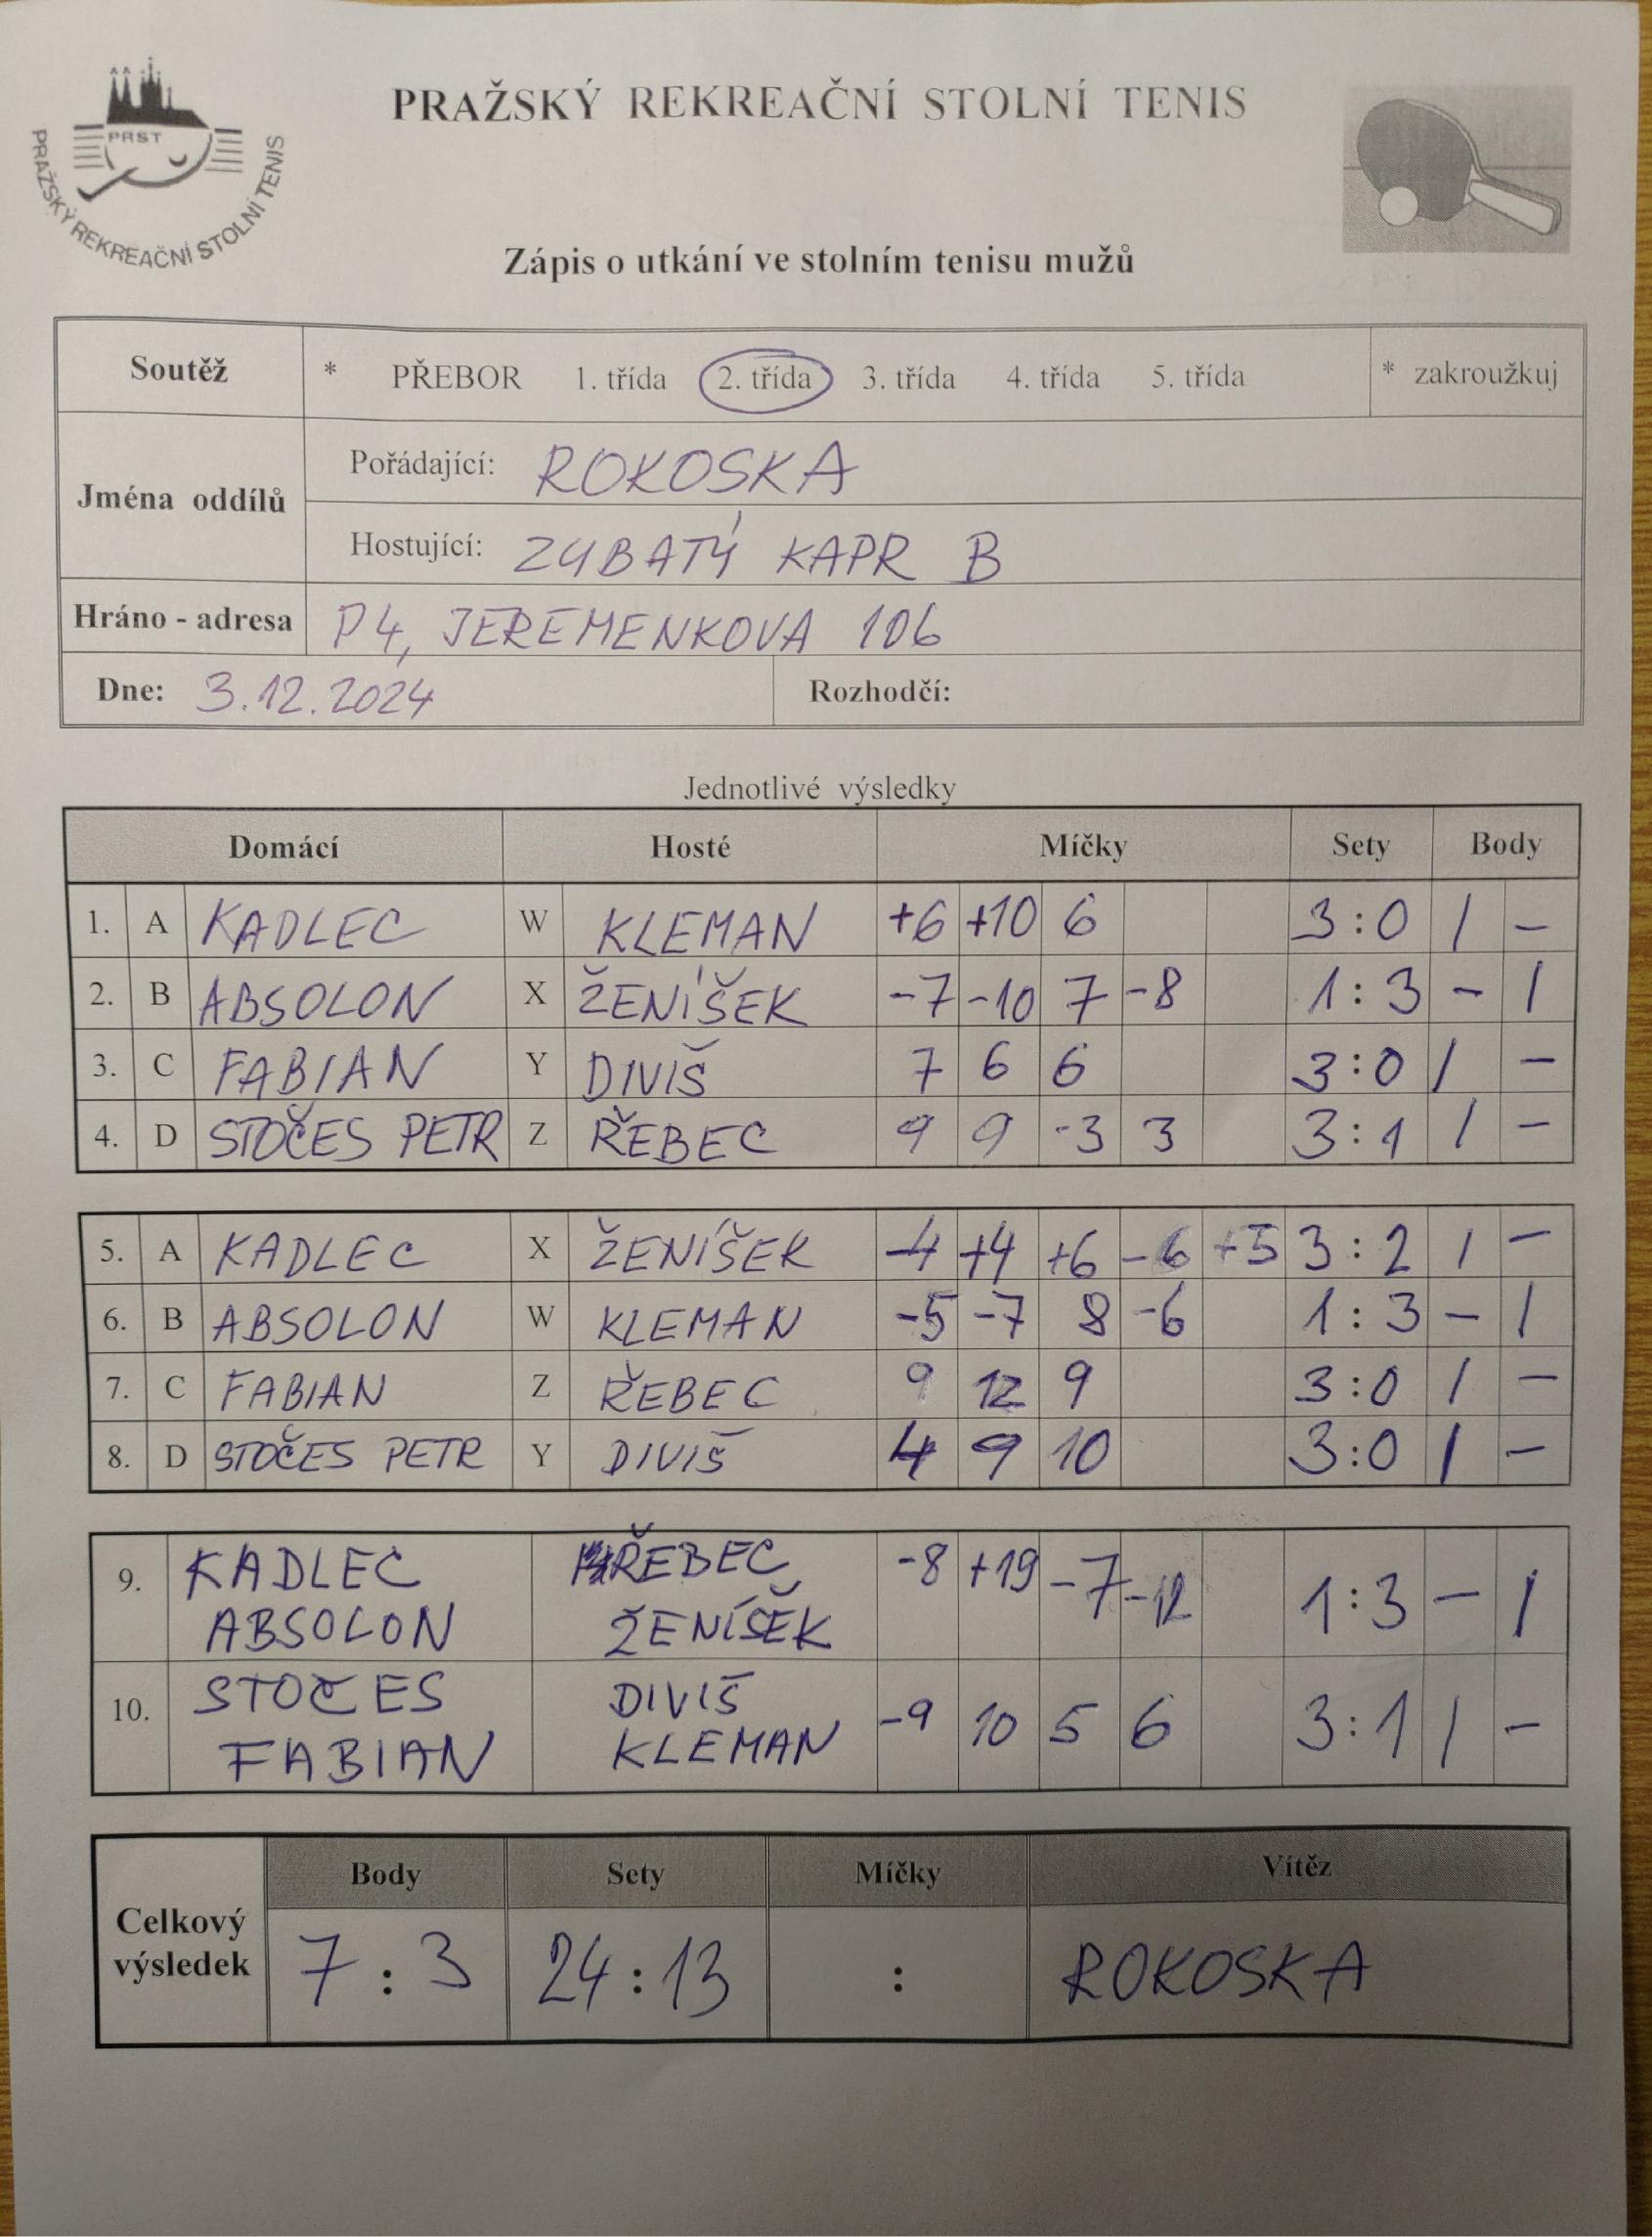 PRST
PRAŽSKÝ REKREAČNÍ STOLNÍ TENIS
PRAŽSKÝ REKREAČNÍ STOLNÍ TENIS
Zápis o utkání ve stolním tenisu mužů
Soutěž * PŘEBOR 1. třída 2. třída 3. třída 4. třída 5. třída * zakroužkuj
Jména oddílů
Pořádající: ROKOSKA
Hostující: ZUBATÝ KAPR B
Hráno - adresa P4, JEREMENKOVA 106
Dne: 3.12.2024 Rozhodčí:
Jednotlivé výsledky
Domácí Hosté Míčky Sety Body
1. A KADLEC W KLEMAN +6 +10 6 3:0 / -
2. B ABSOLON X ŽENÍŠEK -7 -10 7 -8 1:3 - /
3. C FABIAN Y DIVIŠ 7 6 6 3:0 / -
4. D STOČES PETR Z ŘEBEC 9 9 -3 3 3:1 / -
5. A KADLEC X ŽENÍŠEK -4 +4 +6 -6 +5 3:2 / -
6. B ABSOLON W KLEMAN -5 -7 8 -6 1:3 - /
7. C FABIAN Z ŘEBEC 9 12 9 3:0 / -
8. D STOČES PETR Y DIVIŠ 4 9 10 3:0 / -
9. KADLEC ŘEBEC -8 +19 -7 -12 1:3 - /
ABSOLON ŽENÍŠEK
10. STOČES DIVIŠ -9 10 5 6 3:1 / -
FABIAN KLEMAN
Celkový výsledek
Body Sety Míčky Vítěz
7:3 24:13 : ROKOSKA